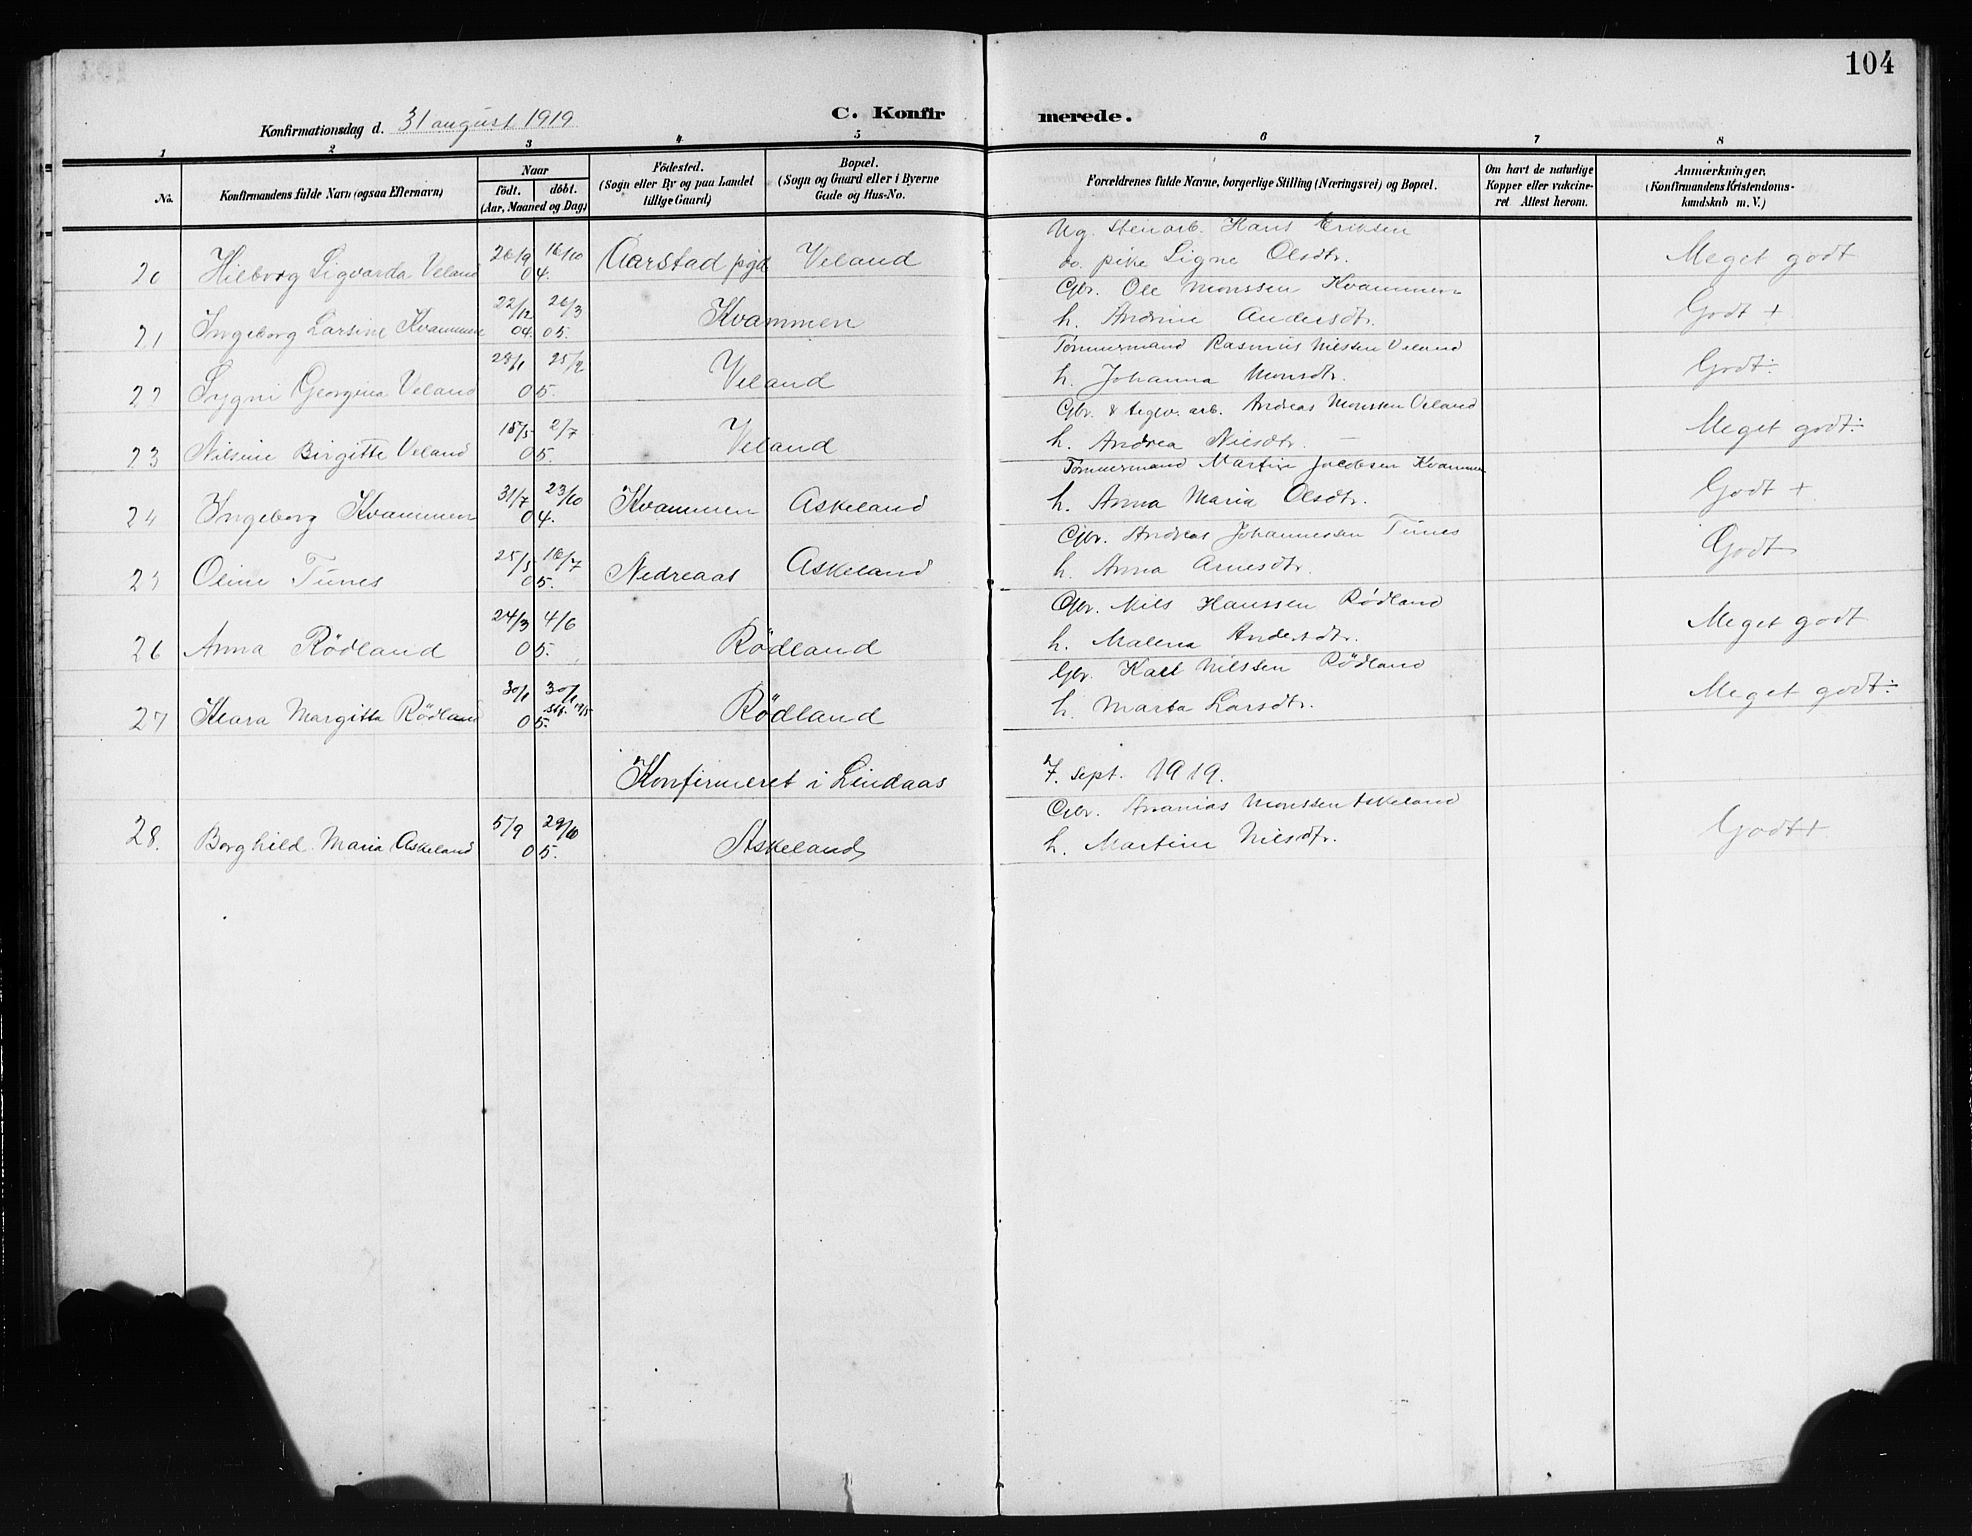 104
Konfirmationsdag d. 31 august 1919
C. Konfirmerede.
1 2 3 4 5 6 7 8
No.
Konfirmandens fulde Navn (ogsaa Efternavn)
Naar
födt. döbt.
(Aar, Maaned og Dag)
Födested.
(Sogn eller By og paa Landet
tillige Gaard)
Bopæl.
(Sogn og Gaard eller i Byerne
Gade og Hus-No.
Forældrenes fulde Navne, borgerlige Stilling (Næringsvei) og Bopæl.
Om havt de naturlige
Kopper eller vakcine-
ret Attest herom.
Anmærkninger.
(Konfirmandens Kristendoms-
kundskab m. V.)
Ug. Stenarb. Hans Eriksen
20 Hilborg Sigvarda Veland 26/9 16/10 04. Aarstad pgd Veland do. pike Signe Olsdtr. Meget godt
Gbr. Ole Monssen Kvammen
21 Ingeborg Larsine Kvammen 22/12 04. 26/3 05. Kvammen h. Andrine Andersdtr. Godt +
Tømmermand Rasmus Nilssen Veland
22 Sygni Georgina Veland 28/1 25/2 05. Veland h. Johanna Monsdtr. Godt÷
Gbr. & teglv. arb. Andreas Monssen Veland
23 Nilsine Birgitte Veland 15/5 2/7 05. Veland h. Andrea Nilsdtr. — Meget godt÷
Tømmermand Martin Jacobsen Kvammen
24 Ingeborg Kvammen 31/7 23/10 04. Kvammen Askeland h. Anna Maria Olsdtr. Godt +
Gbr. Andreas Johannessen Tunes
25 Oline Tunes 25/5 16/7 05. Nedreaas Askeland h. Anna Arnesdtr. Godt
Gbr. Nils Hanssen Rödland
26 Anna Rödland 24/3 4/6 05. Rödland h. Malena Andersdtr. Meget godt
Gbr. Karl Nilssen Rödland
27 Klara Margitta Rödland 30/1 30/1 05. Rödland h. Marta Larsdtr. Meget godt÷
Konfirmeret i Lindaas 7. sept. 1919.
Gbr. Ananias Monssen Askeland
28. Borghild Maria Askeland 5/9 29/10 05. Askeland h. Martine Nilsdtr. Godt+